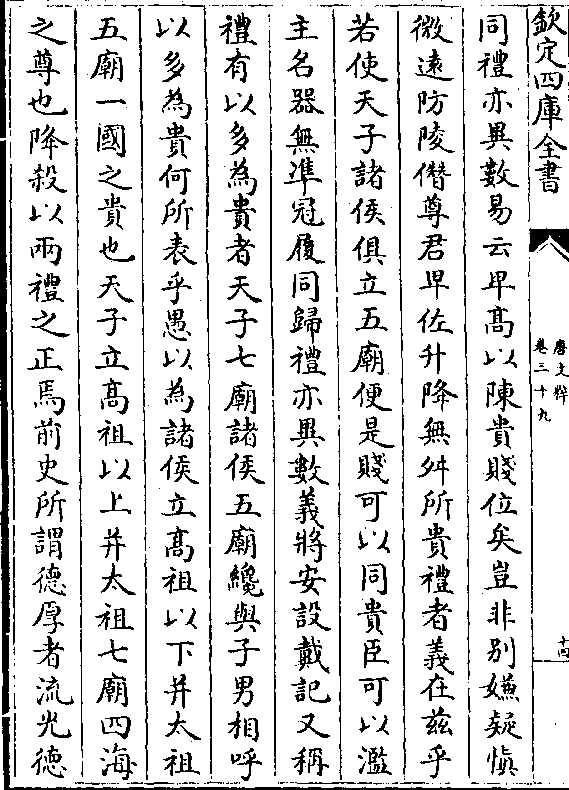 欽定四庫全書
唐文粹
卷三十九
十四
同禮亦異數易云卑髙以陳貴賤位矣豈非别嫌疑慎
微逺防陵僭尊君卑佐升降無舛所貴禮者義在兹乎
若使天子諸侯俱立五廟便是賤可以同貴臣可以濫
主名器無凖冠履同歸禮亦異數義將安設戴記又稱
禮有以多為貴者天子七廟諸侯五廟纔與子男相呼
以多為貴何所表乎愚以為諸侯立髙祖以下并太祖
五廟一國之貴也天子立髙祖以上并太祖七廟四海
之尊也降殺以兩禮之正焉前史所謂德厚者流光德